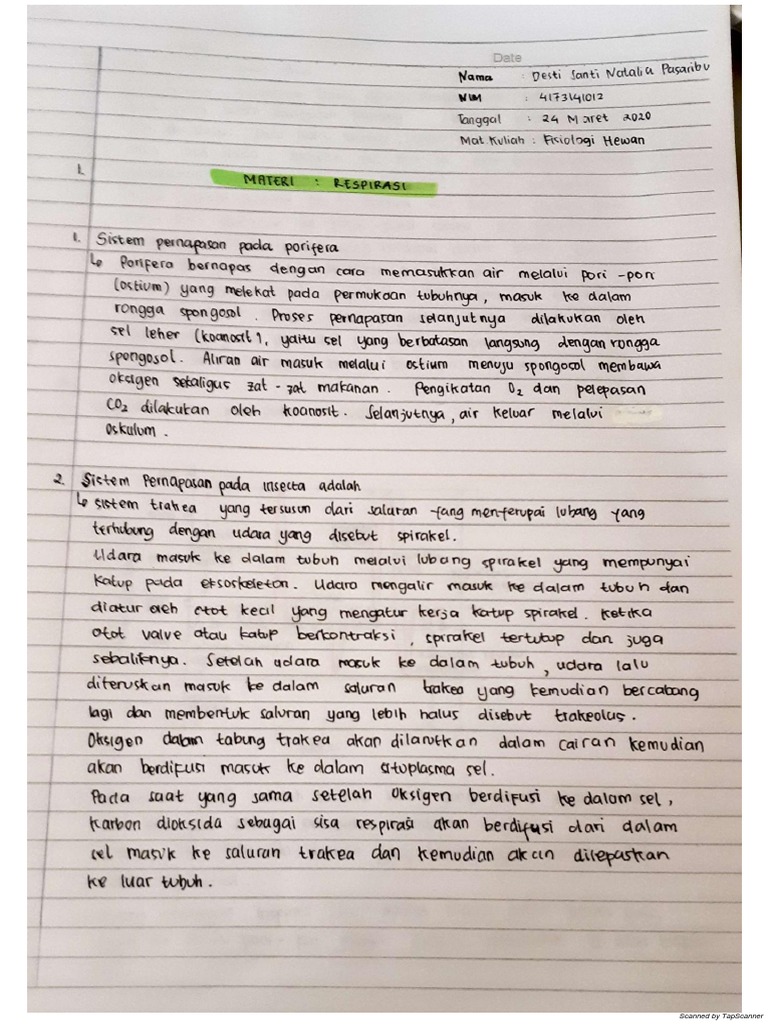 Date
Nama : Desti Santi Natalia Pasaribu
NIM : 4173141012
Tanggal : 24 Maret 2020
Mat.Kuliah : Fisiologi Hewan
1.
MATERI : RESPIRASI
1. Sistem pernapasan pada porifera
↳ Porifera bernapas dengan cara memasukkan air melalui pori-pori
(ostium) yang melekat pada permukaan tubuhnya, masuk ke dalam
rongga spongosol. Proses pernapasan selanjutnya dilakukan oleh
sel leher (koanosit), yaitu sel yang berbatasan langsung dengan rongga
spongosol. Aliran air masuk melalui ostium menuju spongosol membawa
oksigen sekaligus zat-zat makanan. Pengikatan O₂ dan pelepasan
CO₂ dilakukan oleh koanosit. Selanjutnya, air keluar melalui
oskulum.
2. Sistem Pernapasan pada insecta adalah
↳ sistem trakea yang tersusun dari saluran yang menyerupai lubang yang
terhubung dengan udara yang disebut spirakel.
Udara masuk ke dalam tubuh melalui lubang spirakel yang mempunyai
katup pada eksoskeleton. Udara mengalir masuk ke dalam tubuh dan
diatur oleh otot kecil yang mengatur kerja katup spirakel. Ketika
otot valve atau katup berkontraksi, spirakel tertutup dan juga
sebaliknya. Setelah udara masuk ke dalam tubuh, udara lalu
diteruskan masuk ke dalam saluran trakea yang kemudian bercabang
lagi dan membentuk saluran yang lebih halus disebut trakeolus.
Oksigen dalam tabung trakea akan dilarutkan dalam cairan kemudian
akan berdifusi masuk ke dalam sitoplasma sel.
Pada saat yang sama setelah oksigen berdifusi ke dalam sel,
karbon dioksida sebagai sisa respirasi akan berdifusi dari dalam
sel masuk ke saluran trakea dan kemudian akan dilepaskan
ke luar tubuh.
Scanned by TapScanner